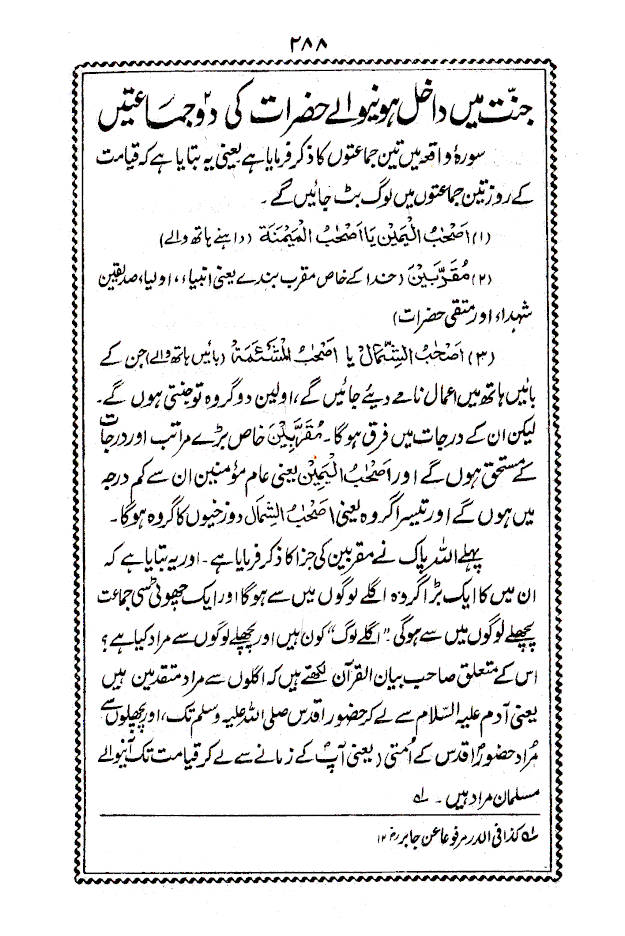 ۲۸۸
جنّت میں داخل ہونیوالے حضرات کی دو۲ جماعتیں
سورۂ واقعہ میں تین جماعتوں کا ذکر فرمایا ہے یعنی یہ بتایا ہے کہ قیامت
کے روز تین جماعتوں میں لوگ بٹ جائیں گے۔
(۱) اَصْحٰبُ الْیَمِیْنِ یا اَصْحٰبُ الْمَیْمَنَة (داہنے ہاتھ والے)
(۲) مُقَرَّبِیْنَ (خدا کے خاص مقرب بندے یعنی انبیاء، اولیاء صدیقین
شہداء اور متقی حضرات)
(۳) اَصْحٰبُ الشِّمَالْ یا اَصْحٰبُ الْمَشْئَمَة (بائیں ہاتھ والے) جن کے
بائیں ہاتھ میں اعمال نامے دیئے جائیں گے، اولین دو گروہ تو جنتی ہوں گے۔
لیکن ان کے درجات میں فرق ہوگا۔ مُقَرَّبِیْنَ خاص بڑے مراتب اور درجات
کے مستحق ہوں گے اور اَصْحٰبُ الْیَمِیْن یعنی عام مؤمنین ان سے کم درجہ
میں ہوں گے اور تیسرا گروہ یعنی اَصْحٰبُ الشِّمَال دوزخیوں کا گروہ ہوگا۔
پہلے اللہ پاک نے مقربین کی جزا کا ذکر فرمایا ہے۔ اور یہ بتایا ہے کہ
ان میں کا ایک بڑا گروہ اگلے لوگوں میں سے ہوگا اور ایک چھوٹی سی جماعت
پچھلے لوگوں میں سے ہوگی۔ "اگلے لوگ" کون ہیں اور پچھلے لوگوں سے مراد کیا ہے؟
اس کے متعلق صاحب بیان القرآن لکھتے ہیں کہ اگلوں سے مراد متقدمین ہیں
یعنی آدم علیہ السّلام سے لے کر حضور اقدس صلی اللہ علیہ وسلم تک، اور پچھلوں سے
مُراد حضورؐ اقدس کے اُمتی (یعنی آپؐ کے زمانے سے لے کر قیامت تک آنیوالے
مسلمان مراد ہیں۔ لے
لے کذا فی الدر مرفوعا عن جابر رض ۱۲